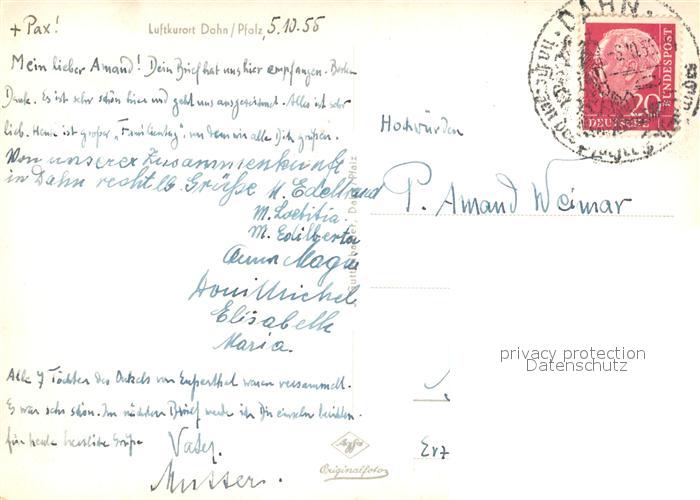 + Pax!
Luftkurort Dahn/Pfalz, 5.10.55
Mein lieber Amand! Dein Brief hat uns hier empfangen. Besten
Dank. Es ist sehr schön hier und geht uns ausgezeichnet. Alles ist sehr
lieb. Heute ist großer „Familientag", von dem wir alle Dich grüßen.
Von unserer Zusammenkunft
in Dahn recht lb Grüße M. Edeltraud
M. Laetitia.
M. Edilberta
Anna Magda
Elisabeth
Maria.
Alle 7 Töchter des Onkels von Eußerthal waren versammelt.
Es war sehr schön. Im nächsten Brief werde ich Dir einzeln berichten.
für heute herzliche Grüße Vater.
Mutter.
Hochwürden
P. Amand Weimar
Erz
DAHN
20
DEUTSCHE
BUNDESPOST
Agfa
Originalfoto
privacy protection
Datenschutz